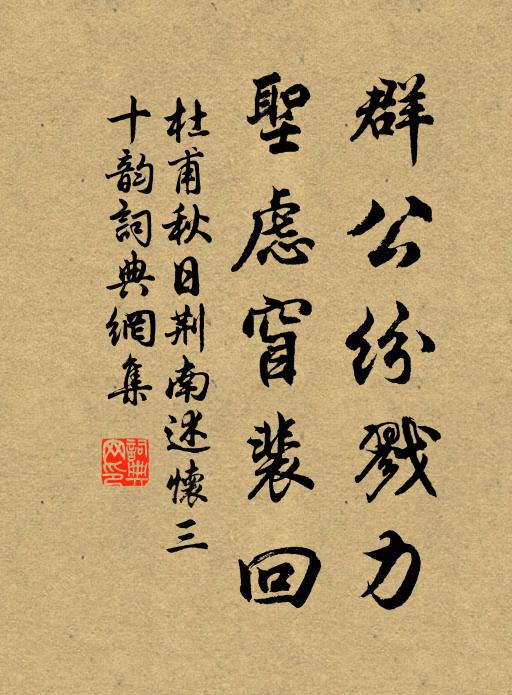 群公纷戮力
聖慮窅裴回
杜甫秋日荆南述懷三
十韵詞典網集
詞典網印